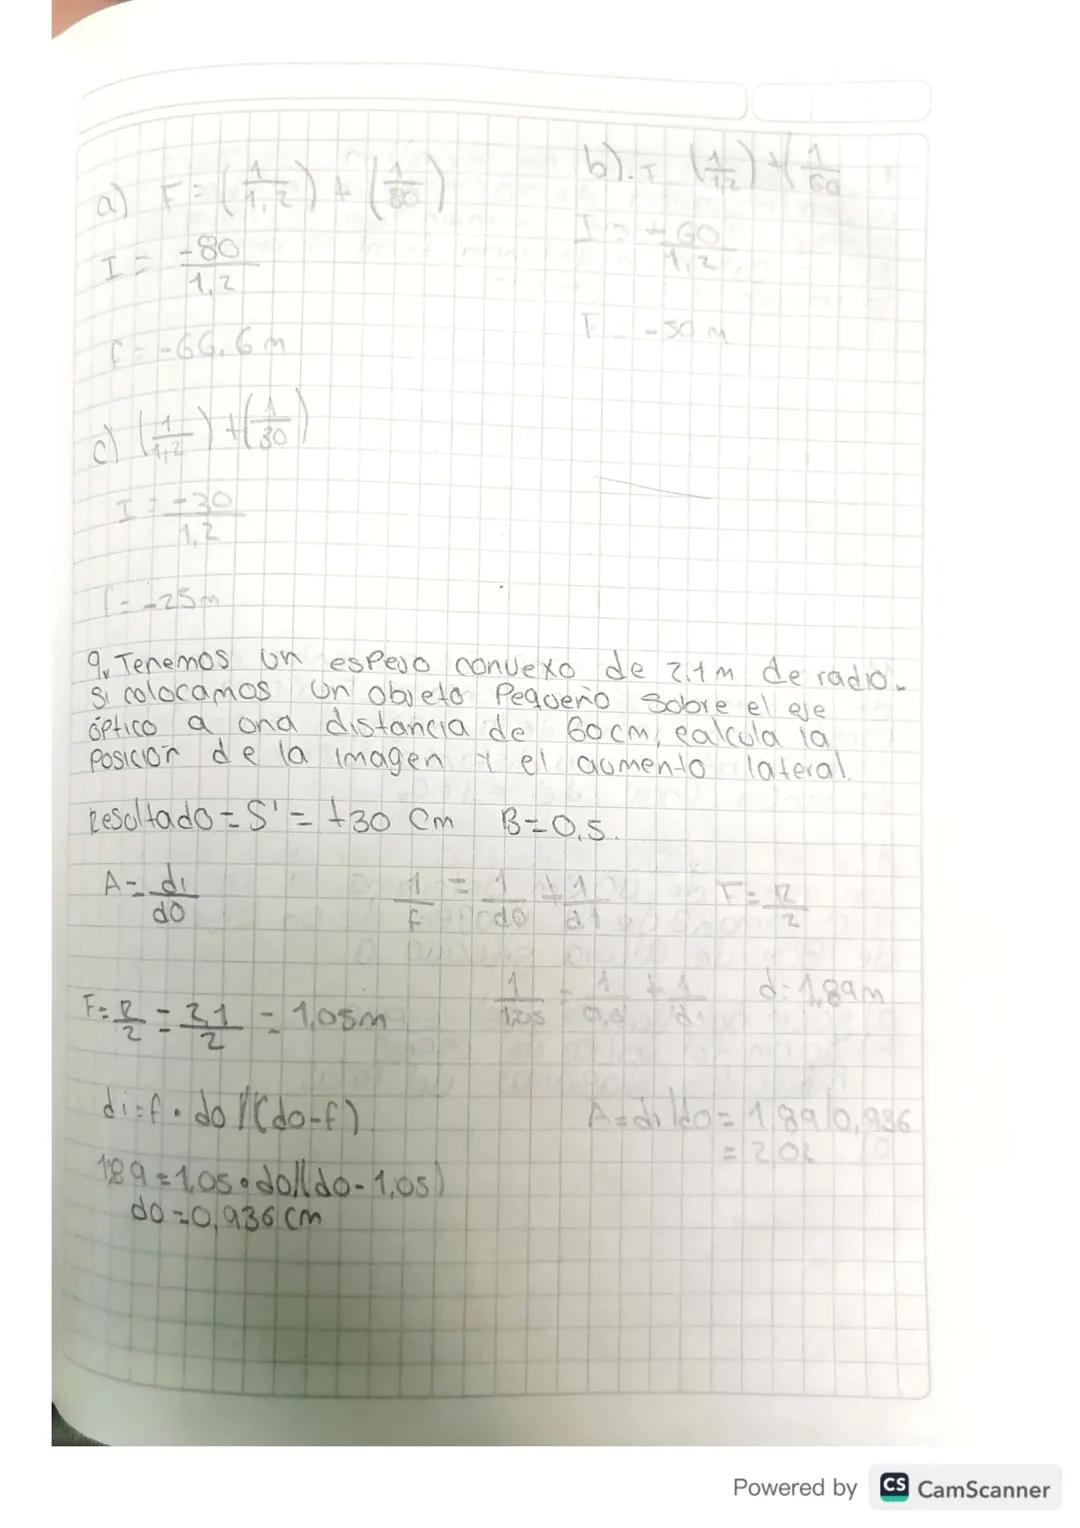 a) F = (1/1,2) + (1/80)
I = -80/1,2
f = -66,6 m
b). I (1/1,2) + (1/60
I = -60/1,2
F = -50 m
c) (1/1,2) + (1/30)
I = -30/1,2
f = -25 m
9. Tenemos un espejo convexo de 2,1 m de radio.
Si colocamos un objeto Pequeño Sobre el eje
óptico a una distancia de 60 cm, calcula la
posición de la imagen y el aumento lateral.
Resultado = S' = +30 Cm B = 0,5.
A = di/do
1/f = 1/do + 1/di
F = R/2
F = R/2 = 2,1/2 = 1,05 m
1/1,05 = 1/0,6 + 1/di
d = 1,89 m
di = f · do / (do - f)
A = di/do = 1,89/0,936
= 2,02
1,89 = 1,05 · do/(do - 1,05)
do = 0,936 cm
Powered by CS CamScanner